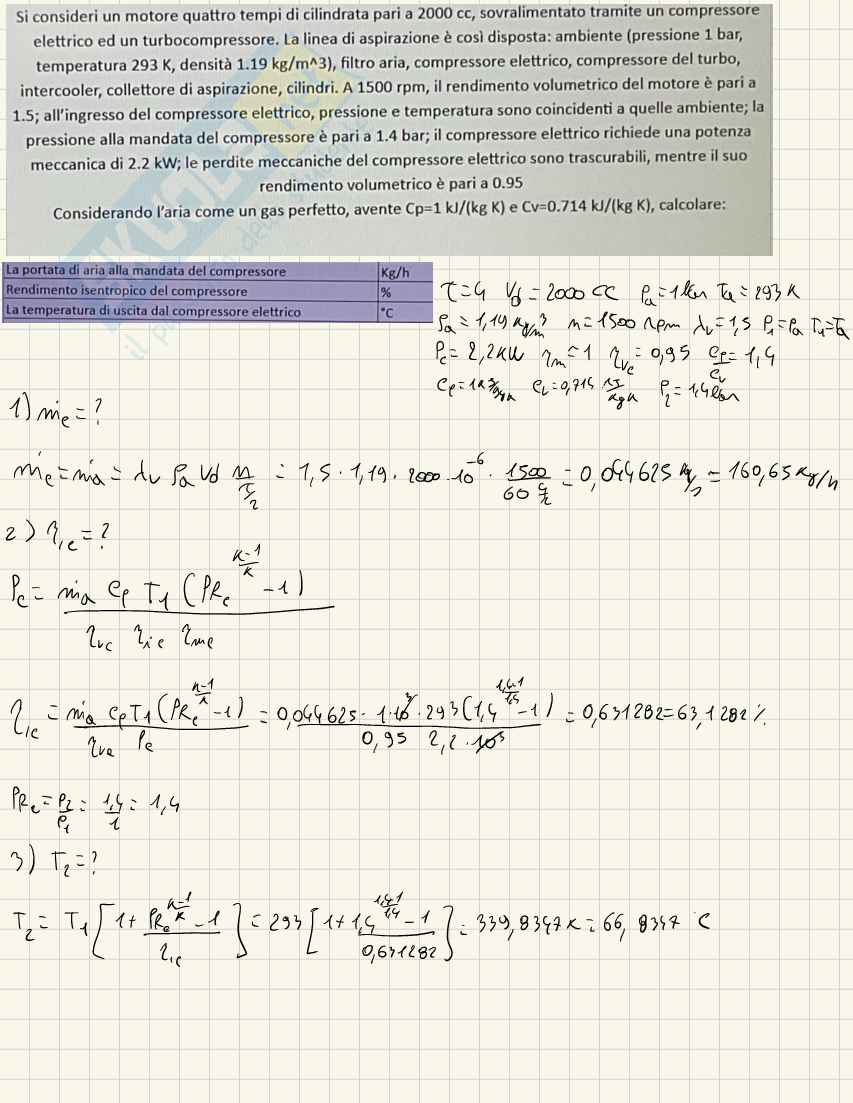 Si consideri un motore quattro tempi di cilindrata pari a 2000 cc, sovralimentato tramite un compressore
elettrico ed un turbocompressore. La linea di aspirazione è così disposta: ambiente (pressione 1 bar,
temperatura 293 K, densità 1.19 kg/m^3), filtro aria, compressore elettrico, compressore del turbo,
intercooler, collettore di aspirazione, cilindri. A 1500 rpm, il rendimento volumetrico del motore è pari a
1.5; all'ingresso del compressore elettrico, pressione e temperatura sono coincidenti a quelle ambiente; la
pressione alla mandata del compressore è pari a 1.4 bar; il compressore elettrico richiede una potenza
meccanica di 2.2 kW; le perdite meccaniche del compressore elettrico sono trascurabili, mentre il suo
rendimento volumetrico è pari a 0.95
Considerando l'aria come un gas perfetto, avente Cp=1 kJ/(kg K) e Cv=0.714 kJ/(kg K), calcolare:
La portata di aria alla mandata del compressore Kg/h
Rendimento isentropico del compressore %
La temperatura di uscita dal compressore elettrico °C
τ=4 Vd=2000 cc Pa=1bar Ta=293 K
ρa=1,19 kg/m³ n=1500 rpm λv=1,5 P1=Pa T1=Ta
Pc=2,2kW ηm=1 ηvc=0,95 cp/cv=1,4
cp=1 kJ/kgK cv=0,714 kJ/kgK P2=1,4bar
1) ṁc=?
ṁc=ṁa=λv ρa Vd n/(τ/2) = 1,5·1,19·2000·10^-6·1500/(60 4/2) = 0,044625 kg/s = 160,65 kg/h
2) ηic=?
Pc= ṁa cp T1 (PRc^((k-1)/k) -1) / ηvc ηic ηmc
ηic = ṁa cp T1 (PRc^((k-1)/k) -1) / ηvc Pc = 0,044625·1·10³·293(1,4^((1,4-1)/1,4) -1) / 0,95 2,2·10³ = 0,631282=63,1282%
PRc=P2/P1= 1,4/1 = 1,4
3) T2=?
T2= T1[1+ (PRc^((k-1)/k) -1)/ηic] = 293[1+ (1,4^((1,4-1)/1,4) -1)/0,631282] = 339,8347 K = 66,8347 °C